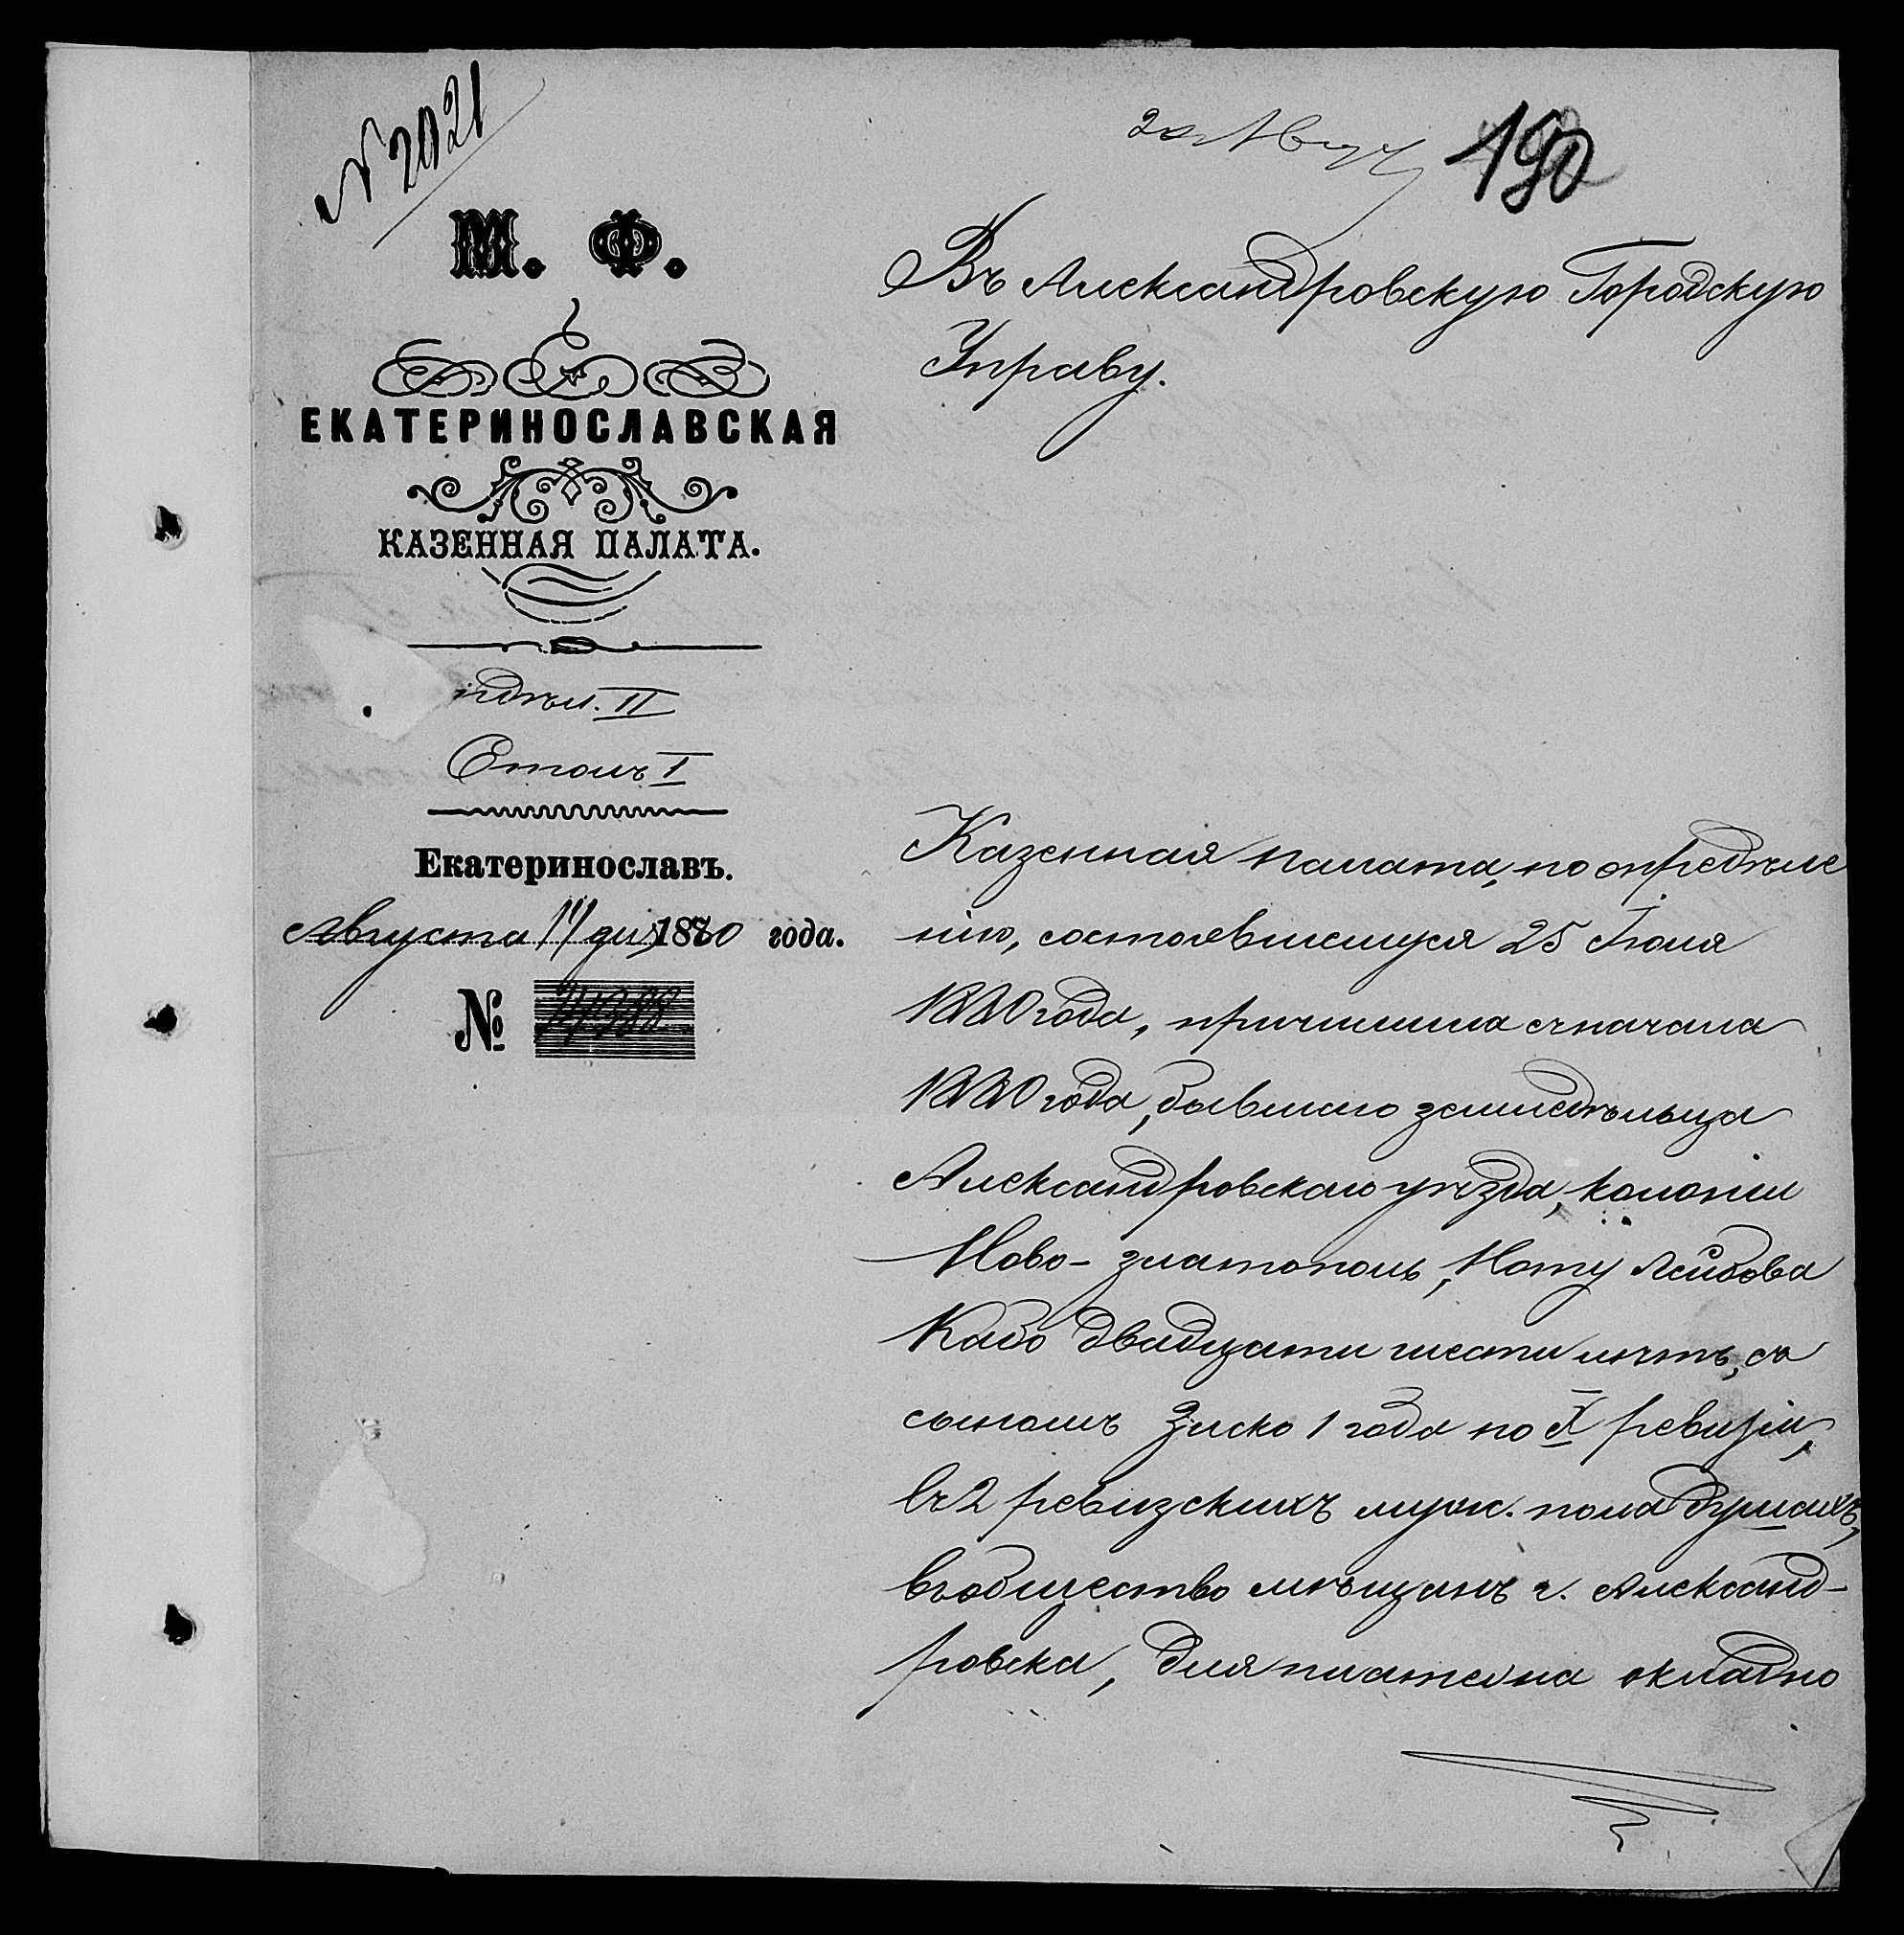 № 2021
20 Авг
190
М. Ф.
ЕКАТЕРИНОСЛАВСКАЯ
КАЗЕННАЯ ПАЛАТА.
тдѣл. II
Столъ I
Екатеринославъ.
Августа 11 дня 1880 года.
№
Въ Александровскую Городскую
Управу.
Казенная палата, по опредѣле
нію, состоявшемуся 25 Іюля
1880 года, причислила съ начала
1880 года, бывшаго земледѣльца
Александровскаго уѣзда, колоніи
Ново-златополь, Ноту Лейбова
Кабо двадцати шести лѣтъ, съ
сыномъ Зиско 1 года по X ревизіи,
въ 2 ревизскихъ муж. пола душахъ,
въ общество мѣщанъ г. Александ-
ровска, для платежа окладно